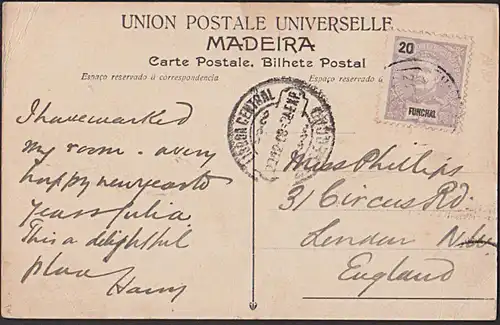 UNION POSTALE UNIVERSELLE
MADEIRA
Carte Postale. Bilhete Postal
Espaço reservado á correspondencia
Espaço reservado
20
FUNCHAL
LISBOA CENTRAL
I have marked
my room - a very
happy new year to
you Julia
This a delightful
place
Harry
Miss Phillips
31 Circus Rd.
London N.W.
England